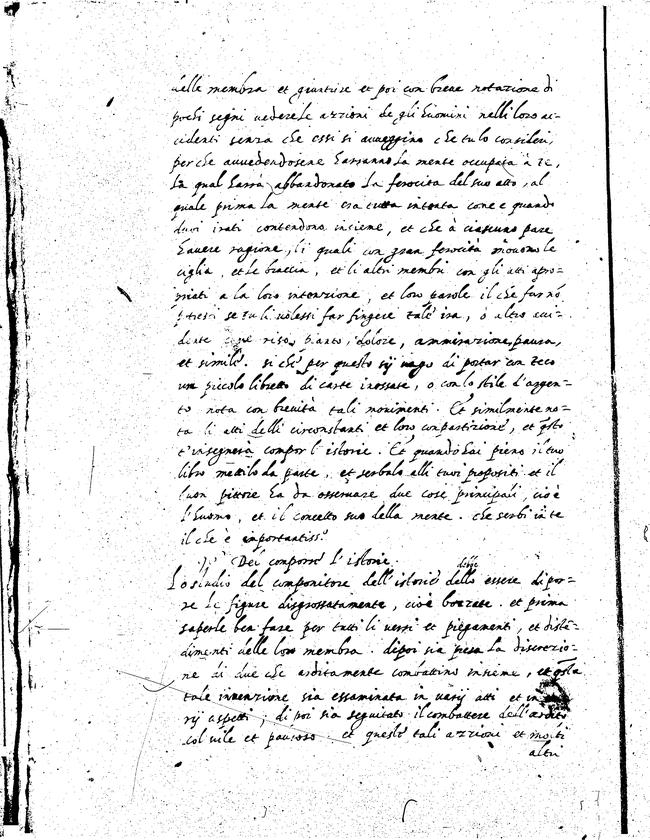 nelle membra et giunture et poi con breue notazione di
pochi segni uedere le azzioni de gli huomini nelli loro ac-
cidenti senza che essi si auueggino che tu lo consideri,
perche auuedendosene harranno la mente occupata à te,
la qual harrà abbandonato la ferocita del suo atto, al
quale prima la mente era tutta intenta come e quando
duoi irati contendono insieme, et che à ciascuno pare
hauere ragione, li quali con gran ferocità mouono le
ciglia, et le braccia, et li altri membri con gli atti apro=
priati a la loro intenzione, et loro parole il che far nō
potresti se tu li uolessi far fingere tale ira, o altro acci-
dente riso, pianto, dolore, ammirazione, paura,
et simile. si che per questo sij uago di portar con teco
un piccolo libretto di carte inossate, o con lo stile d'argen-
to nota con breuità tali mouimenti. Et similmente no=
ta li atti delli circonstanti et loro conpartizione, et qsto
t'insegnerà compor l'istorie. Et quando hai pieno il tuo
libro mettilo da parte, et serbalo alli tuoi propositi et il
buon pittore ha da osseruare due cose principali, cioè
l'huomo, et il concetto suo della mente. che serbi in te
il che è importantiss.º
Del comporre l'istorie. deue
Lo studio del componitore dell'istorie dello essere di por=
re le figure disgrossatamente, cioè bozzate. et prima
saperle ben fare per tutti li uersi et piegamenti, et diste=
dimenti delle loro membra. dipoi sia presa la discrezio=
ne di due che arditamente combattino insieme, et qsta
tale inuenzione sia essaminata in uarij atti et in
rij aspetti; di poi sia seguitato il combattere dell'ardito
col uile et pauroso. et queste tali azzioni et molti
altri